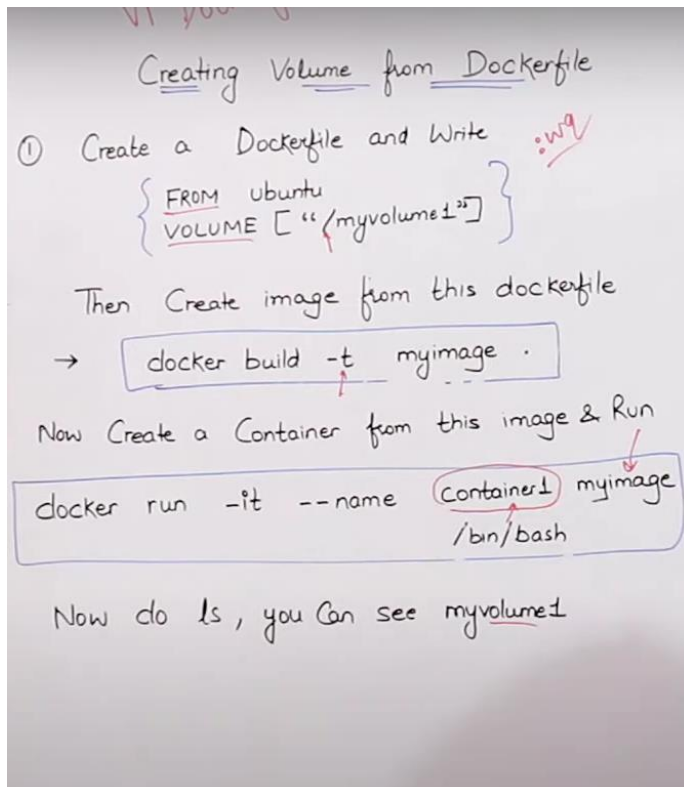 Creating Volume from Dockerfile
① Create a Dockerfile and Write :wq
FROM Ubuntu
VOLUME ["/myvolume1"]
Then Create image from this dockerfile
→ docker build -t myimage .
Now Create a Container from this image & Run
docker run -it --name container1 myimage
/bin/bash
Now do ls, you Can see myvolume1